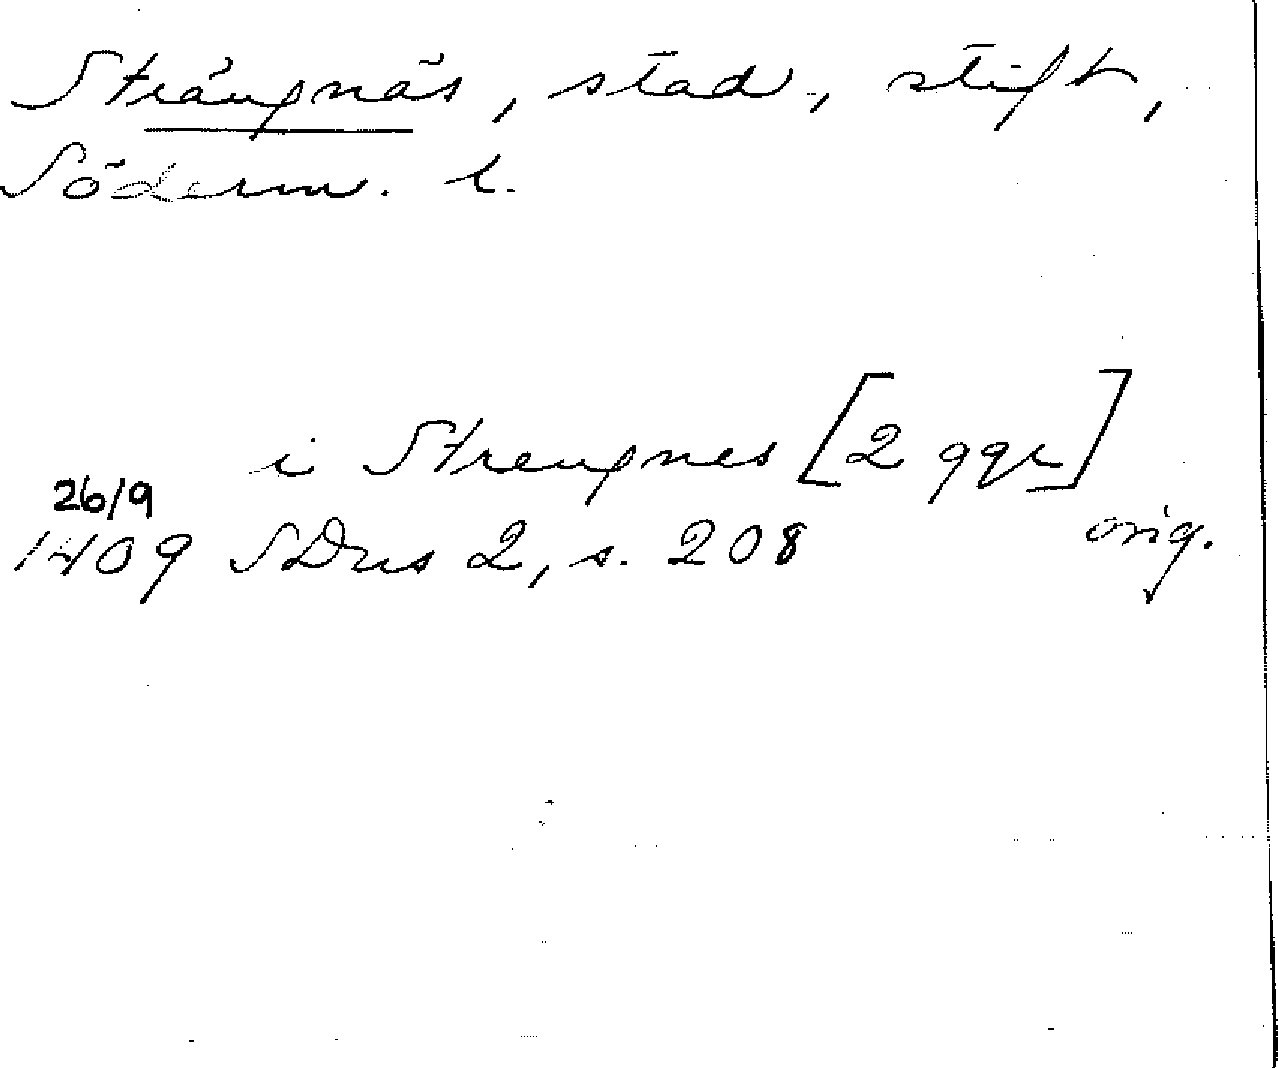 Strängnäs, stad, stift,
Söderm. l.
i Strengnes [2 ggr]
26/9
1409 SDns 2, s. 208 orig.